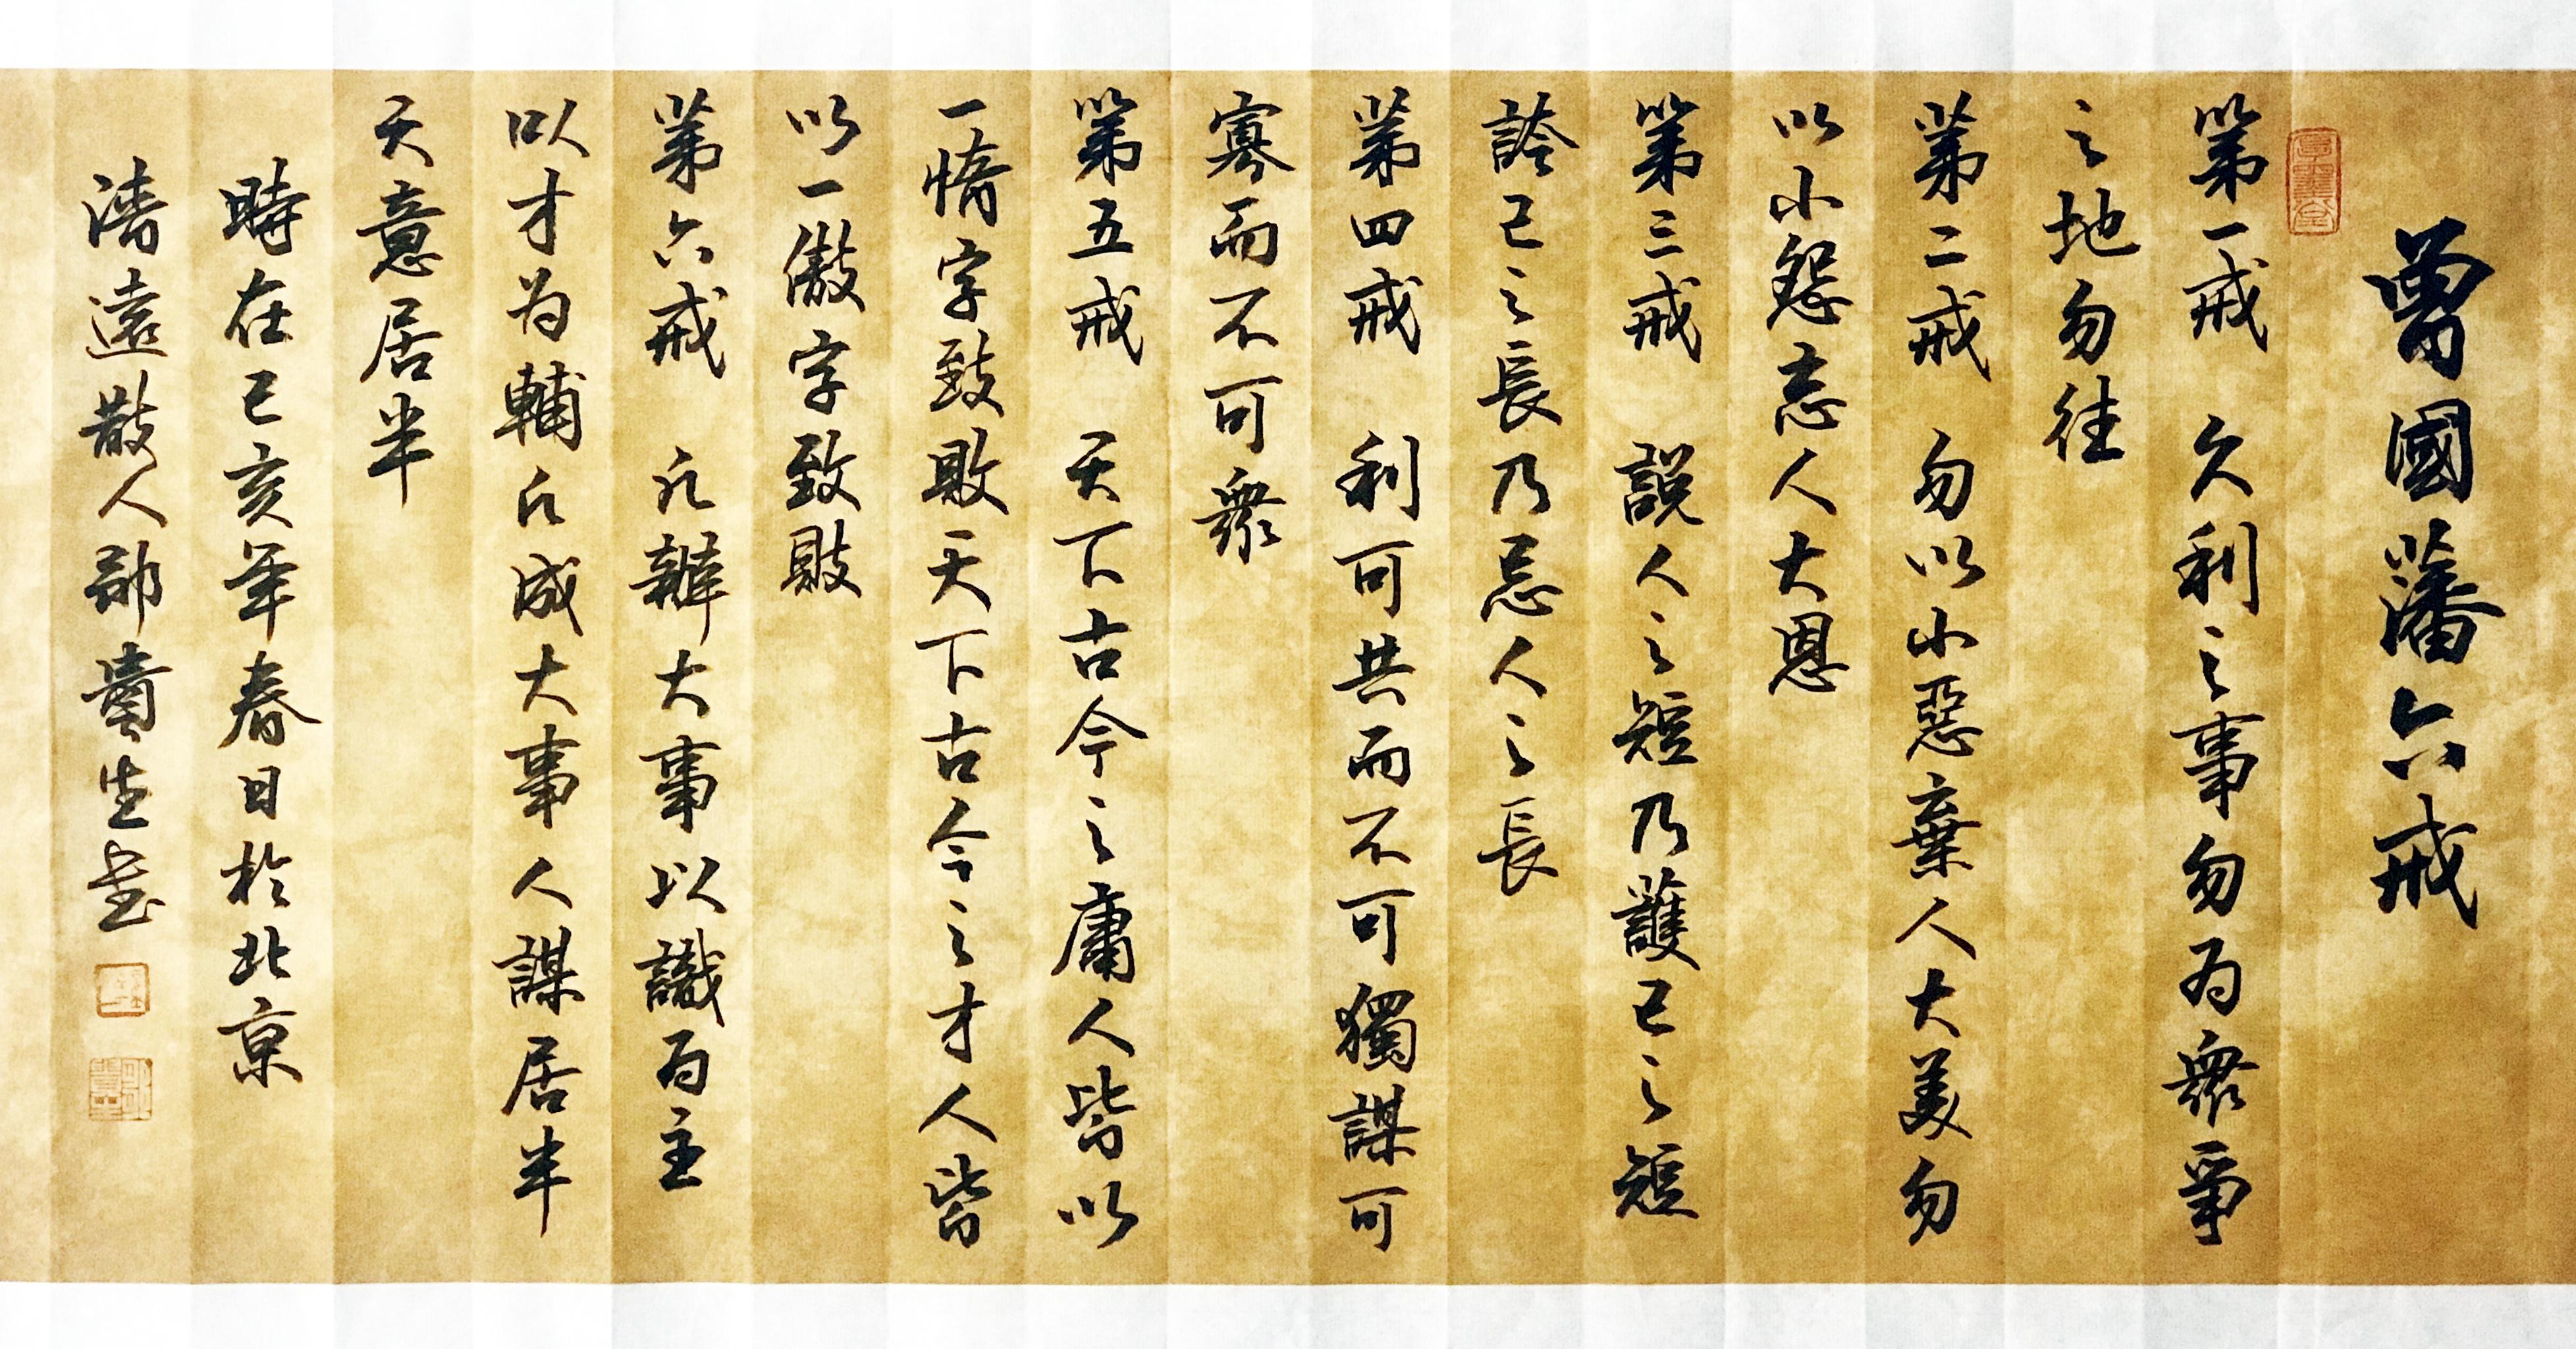 曾國藩六戒
第一戒 久利之事勿为衆爭
之地勿往
第二戒 勿以小惡棄人大美勿
以小怨忘人大恩
第三戒 説人之短乃護己之短
誇己之長乃忌人之長
第四戒 利可共而不可獨謀可
寡而不可衆
第五戒 天下古今之庸人皆以
一惰字致敗天下古今之才人皆
以一傲字致敗
第六戒 凡辦大事以識为主
以才为輔凡成大事人謀居半
天意居半
時在己亥年春日於北京
清遠散人邵貴生书